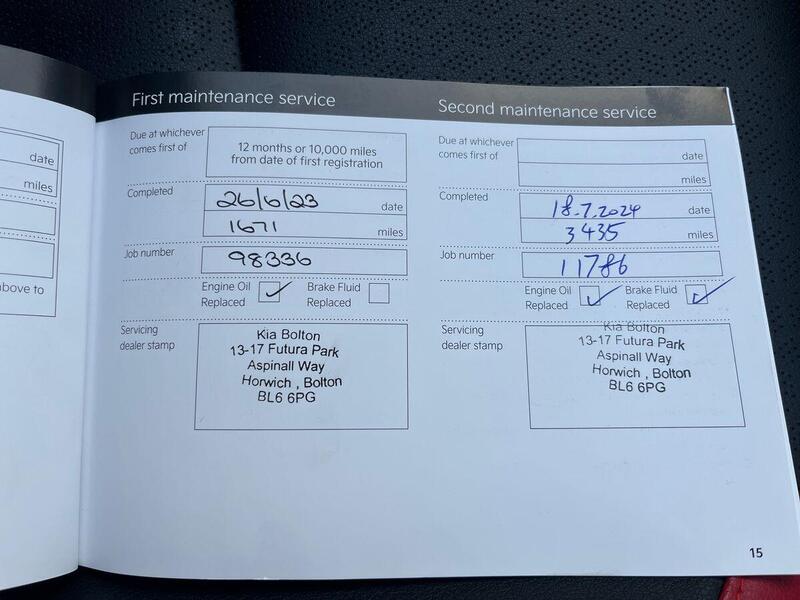 date
miles
above to
First maintenance service
Due at whichever
comes first of
12 months or 10,000 miles
from date of first registration
Completed
26/6/23 date
1671 miles
Job number
98336
Engine Oil
Replaced
Brake Fluid
Replaced
Servicing
dealer stamp
Kia Bolton
13-17 Futura Park
Aspinall Way
Horwich , Bolton
BL6 6PG
Second maintenance service
Due at whichever
comes first of
date
miles
Completed
18.7.2024 date
3435 miles
Job number
11786
Engine Oil
Replaced
Brake Fluid
Replaced
Servicing
dealer stamp
Kia Bolton
13-17 Futura Park
Aspinall Way
Horwich , Bolton
BL6 6PG
15